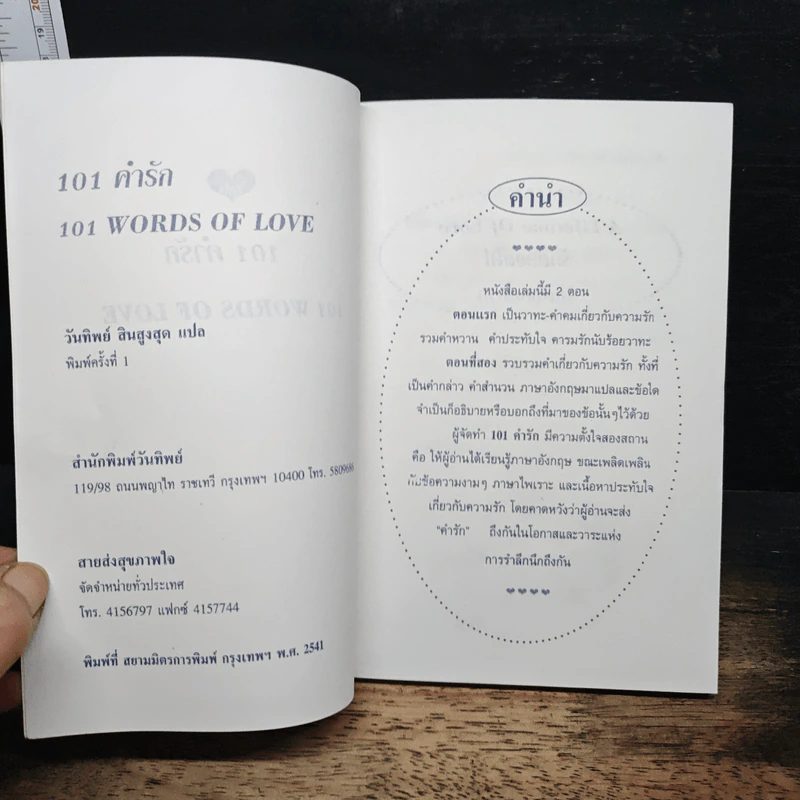 101 คำรัก
101 WORDS OF LOVE
วันทิพย์ สินสูงสุด แปล
พิมพ์ครั้งที่ 1
สำนักพิมพ์วันทิพย์
119/98 ถนนพญาไท ราชเทวี กรุงเทพฯ 10400 โทร. 5809686
สายส่งสุขภาพใจ
จัดจำหน่ายทั่วประเทศ
โทร. 4156797 แฟกซ์ 4157744
พิมพ์ที่ สยามมิตรการพิมพ์ กรุงเทพฯ พ.ศ. 2541
คำนำ
หนังสือเล่มนี้มี 2 ตอน
ตอนแรก เป็นวาทะ-คำคมเกี่ยวกับความรัก
รวมคำหวาน คำประทับใจ คารมรักนับร้อยวาทะ
ตอนที่สอง รวบรวมคำเกี่ยวกับความรัก ทั้งที่
เป็นคำกล่าว คำสำนวน ภาษาอังกฤษมาแปลและข้อใด
จำเป็นก็อธิบายหรือบอกถึงที่มาของข้อนั้นๆไว้ด้วย
ผู้จัดทำ 101 คำรัก มีความตั้งใจสองสถาน
คือ ให้ผู้อ่านได้เรียนรู้ภาษาอังกฤษ ขณะเพลิดเพลิน
กับข้อความงามๆ ภาษาไพเราะ และเนื้อหาประทับใจ
เกี่ยวกับความรัก โดยคาดหวังว่าผู้อ่านจะส่ง
"คำรัก" ถึงกันในโอกาสและวาระแห่ง
การรำลึกนึกถึงกัน
20
19